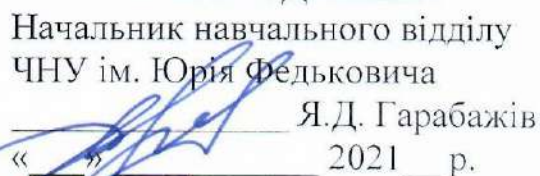 Начальник навчального відділу
ЧНУ ім. Юрія Федьковича
____________ Я.Д. Гарабажів
«___» ____________ 2021 р.